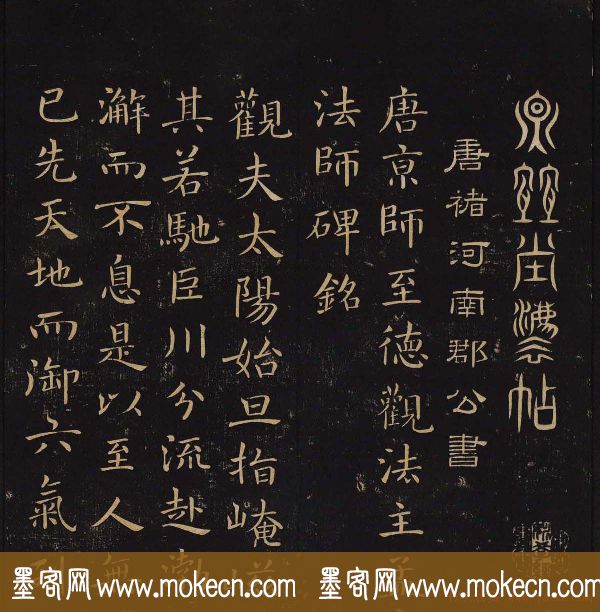 堂灋帖
唐褚河南郡公書
唐京師至德觀法主
法師碑銘
觀夫太陽始旦指崦
其若馳巨川分流赴渤
澥而不息是以至人無
已先天地而御六氣
墨客网 www.mokecn.com 墨客网 www.mokecn.com